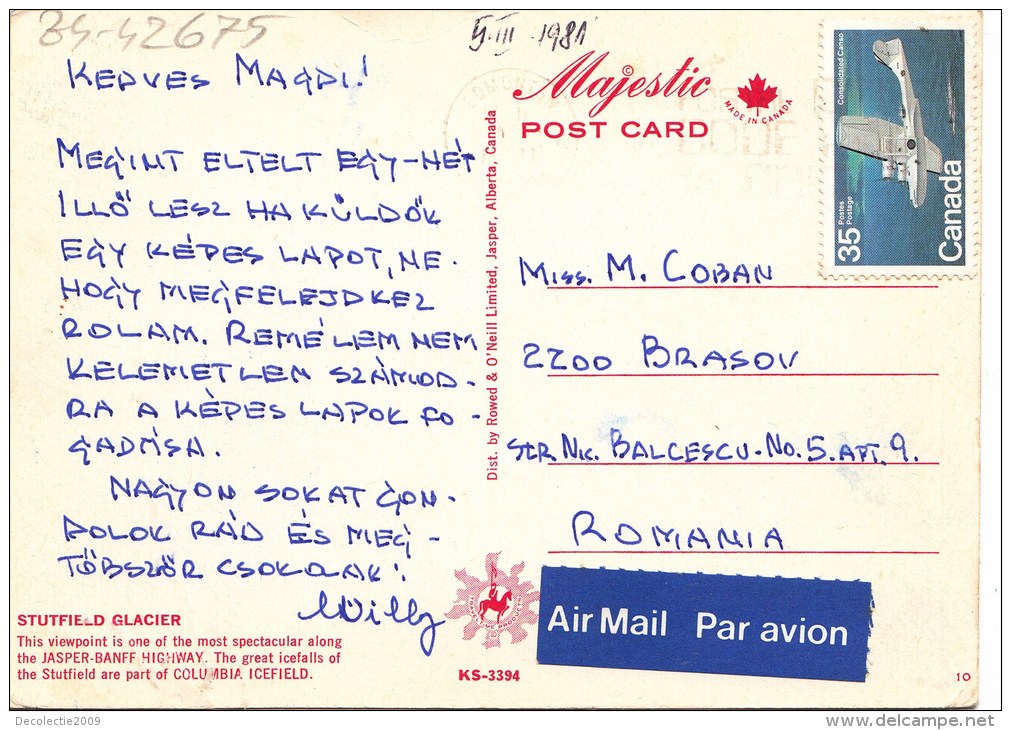 34-42675
5.III.1981
KEDVES MAGDI!
MEGINT ELTELT EGY-HÉT
ILLŐ LESZ HA KÜLDÖK
EGY KÉPES LAPOT, NE.
HOGY MEGFELEJDKEZ
ROLAM. REMÉLEM NEM
KELEMETLEN SZÁMOD-
RA A KÈPES LAPOK FO-
GADÁSA.
NAGYON SOKAT GON-
DOLOK RÁD ÉS MEG-
TÖBSZÖR CSOKOLAK!
Willy
STUTFIELD GLACIER
This viewpoint is one of the most spectacular along
the JASPER-BANFF HIGHWAY. The great icefalls of
the Stutfield are part of COLUMBIA ICEFIELD.
Dist. by Rowed & O'Neill Limited, Jasper, Alberta, Canada
Majestic
©
POST CARD
MADE IN CANADA
35
Postes
Postage
Canada
Consolidated Canso
MISS. M. COBAN
2200 BRASOV
STR. NIC. BALCESCU. NO. 5. APT. 9.
ROMANIA
Air Mail Par avion
KS-3394
10
Decolectie2009
www.delcampe.net